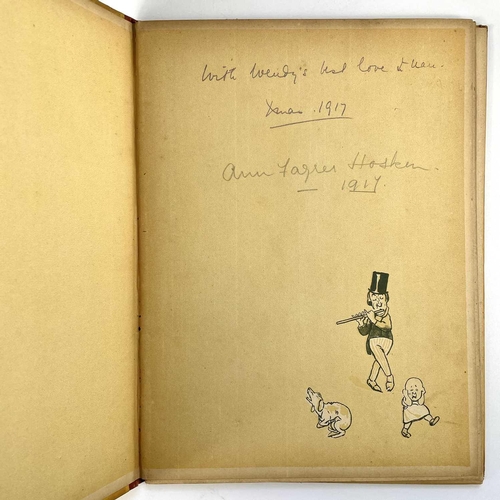 With Wendy's best love to Nan.
Xmas. 1917
Ann Fagner Hosken.
1917.